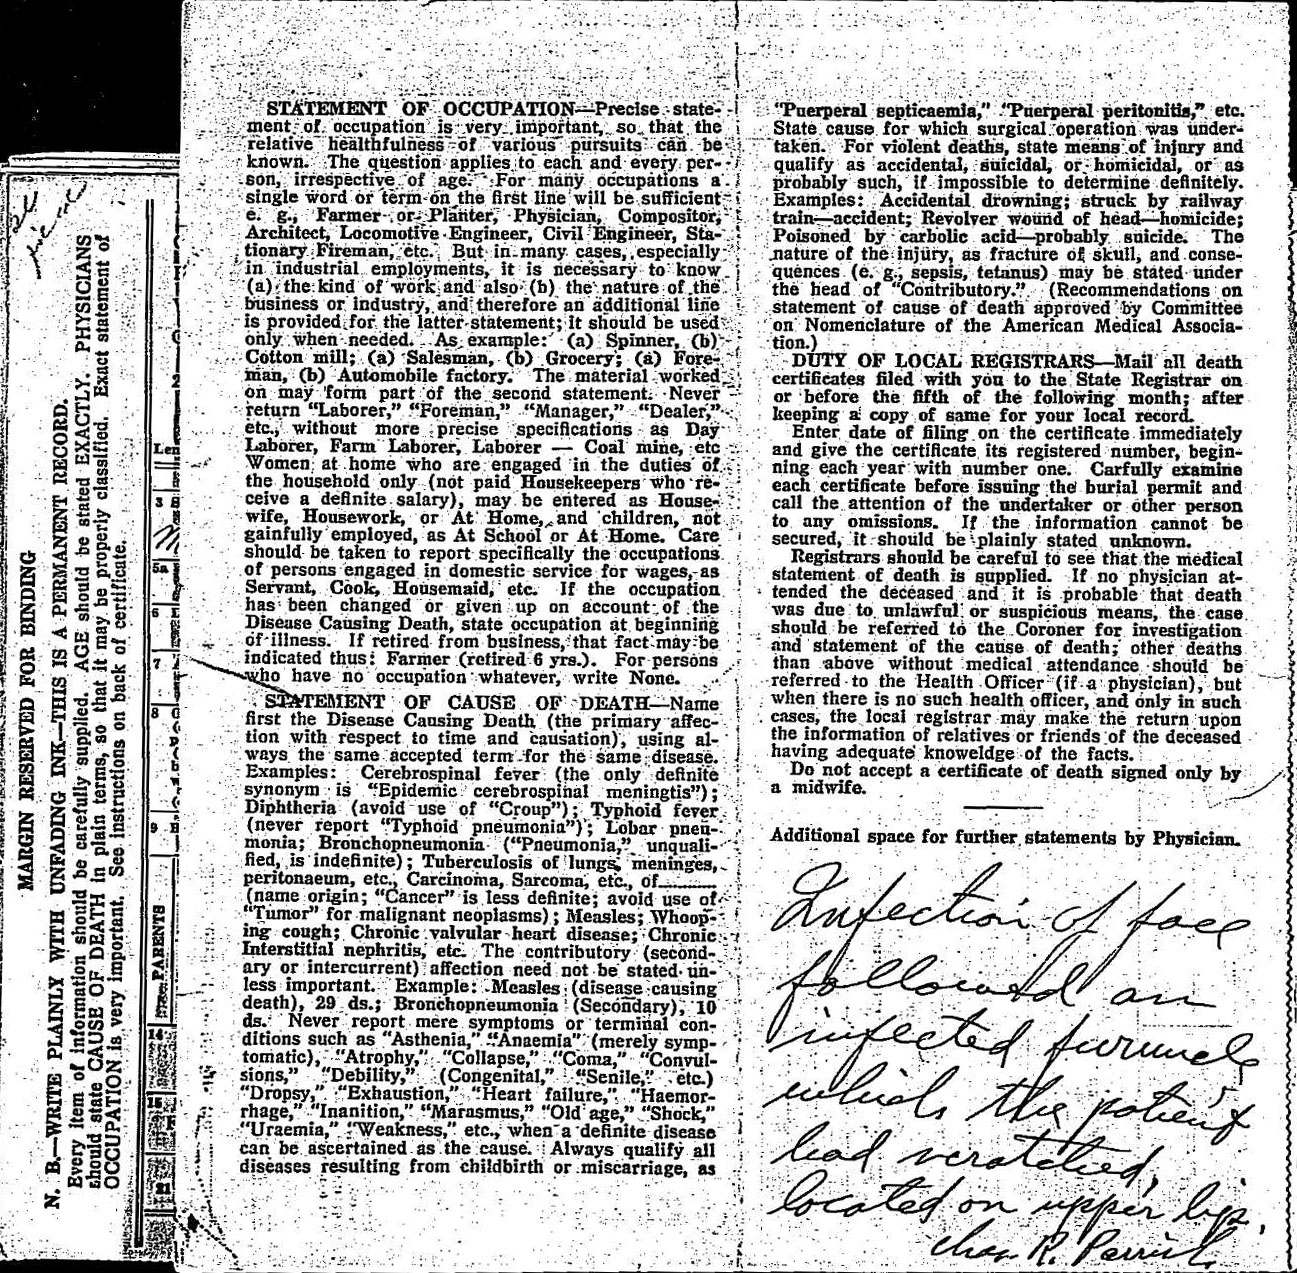 MARGIN RESERVED FOR BINDING
N. B.—WRITE PLAINLY WITH UNFADING INK—THIS IS A PERMANENT RECORD.
Every item of information should be carefully supplied. AGE should be stated EXACTLY. PHYSICIANS
should state CAUSE OF DEATH in plain terms, so that it may be properly classified. Exact statement of
OCCUPATION is very important. See instructions on back of certificate.
Len
3
5a
6
7
8
9
PARENTS
14
15
21
STATEMENT OF OCCUPATION—Precise state-
ment of occupation is very important, so that the
relative healthfulness of various pursuits can be
known. The question applies to each and every per-
son, irrespective of age. For many occupations a
single word or term on the first line will be sufficient
e. g., Farmer or Planter, Physician, Compositor,
Architect, Locomotive Engineer, Civil Engineer, Sta-
tionary Fireman, etc. But in many cases, especially
in industrial employments, it is necessary to know
(a) the kind of work and also (b) the nature of the
business or industry, and therefore an additional line
is provided for the latter statement; it should be used
only when needed. As example: (a) Spinner, (b)
Cotton mill; (a) Salesman, (b) Grocery; (a) Fore-
man, (b) Automobile factory. The material worked
on may form part of the second statement. Never
return "Laborer," "Foreman," "Manager," "Dealer,"
etc., without more precise specifications as Day
Laborer, Farm Laborer, Laborer — Coal mine, etc
Women at home who are engaged in the duties of
the household only (not paid Housekeepers who re-
ceive a definite salary), may be entered as House-
wife, Housework, or At Home, and children, not
gainfully employed, as At School or At Home. Care
should be taken to report specifically the occupations
of persons engaged in domestic service for wages, as
Servant, Cook, Housemaid, etc. If the occupation
has been changed or given up on account of the
Disease Causing Death, state occupation at beginning
of illness. If retired from business, that fact may be
indicated thus: Farmer (retired 6 yrs.). For persons
who have no occupation whatever, write None.
STATEMENT OF CAUSE OF DEATH—Name
first the Disease Causing Death (the primary affec-
tion with respect to time and causation), using al-
ways the same accepted term for the same disease.
Examples: Cerebrospinal fever (the only definite
synonym is "Epidemic cerebrospinal meningtis");
Diphtheria (avoid use of "Croup"); Typhoid fever
(never report "Typhoid pneumonia"); Lobar pneu-
monia; Bronchopneumonia ("Pneumonia," unquali-
fied, is indefinite); Tuberculosis of lungs, meninges,
peritonaeum, etc., Carcinoma, Sarcoma, etc., of........
(name origin; "Cancer" is less definite; avoid use of
"Tumor" for malignant neoplasms); Measles; Whoop-
ing cough; Chronic valvular heart disease; Chronic
Interstitial nephritis, etc. The contributory (second-
ary or intercurrent) affection need not be stated un-
less important. Example: Measles (disease causing
death), 29 ds.; Bronchopneumonia (Secondary), 10
ds. Never report mere symptoms or terminal con-
ditions such as "Asthenia," "Anaemia" (merely symp-
tomatic), "Atrophy," "Collapse," "Coma," "Convul-
sions," "Debility," (Congenital," "Senile," etc.)
"Dropsy," "Exhaustion," "Heart failure," "Haemor-
rhage," "Inanition," "Marasmus," "Old age," "Shock,"
"Uraemia," "Weakness," etc., when a definite disease
can be ascertained as the cause. Always qualify all
diseases resulting from childbirth or miscarriage, as
"Puerperal septicaemia," "Puerperal peritonitis," etc.
State cause for which surgical operation was under-
taken. For violent deaths, state means of injury and
qualify as accidental, suicidal, or homicidal, or as
probably such, if impossible to determine definitely.
Examples: Accidental drowning; struck by railway
train—accident; Revolver wound of head—homicide;
Poisoned by carbolic acid—probably suicide. The
nature of the injury, as fracture of skull, and conse-
quences (e. g., sepsis, tetanus) may be stated under
the head of "Contributory." (Recommendations on
statement of cause of death approved by Committee
on Nomenclature of the American Medical Associa-
tion.)
DUTY OF LOCAL REGISTRARS—Mail all death
certificates filed with you to the State Registrar on
or before the fifth of the following month; after
keeping a copy of same for your local record.
Enter date of filing on the certificate immediately
and give the certificate its registered number, begin-
ning each year with number one. Carfully examine
each certificate before issuing the burial permit and
call the attention of the undertaker or other person
to any omissions. If the information cannot be
secured, it should be plainly stated unknown.
Registrars should be careful to see that the medical
statement of death is supplied. If no physician at-
tended the deceased and it is probable that death
was due to unlawful or suspicious means, the case
should be referred to the Coroner for investigation
and statement of the cause of death; other deaths
than above without medical attendance should be
referred to the Health Officer (if a physician), but
when there is no such health officer, and only in such
cases, the local registrar may make the return upon
the information of relatives or friends of the deceased
having adequate knoweldge of the facts.
Do not accept a certificate of death signed only by
a midwife.
Additional space for further statements by Physician.
Infection of face
followed an
infected furuncle
which the patient
had scratched,
located on upper lip.
Chas. R. Parrish